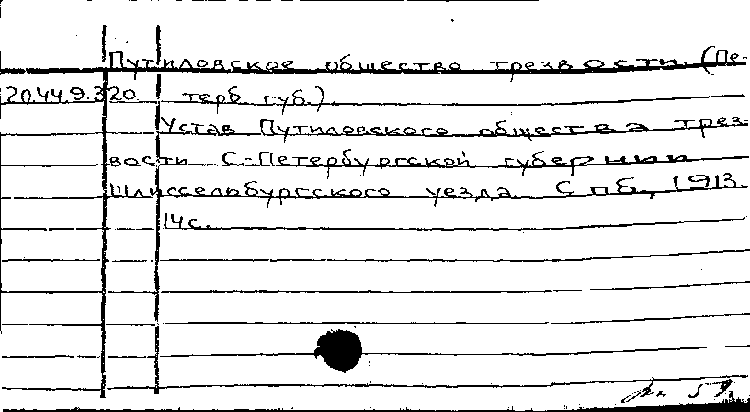 Путиловское общество трезвости (Пе-
20.44.9.320 терб. губ.).
Устав Путиловского общества трез-
вости С-Петербургской губернии
Шлиссельбургского уезда. Спб, 1913.
14с.